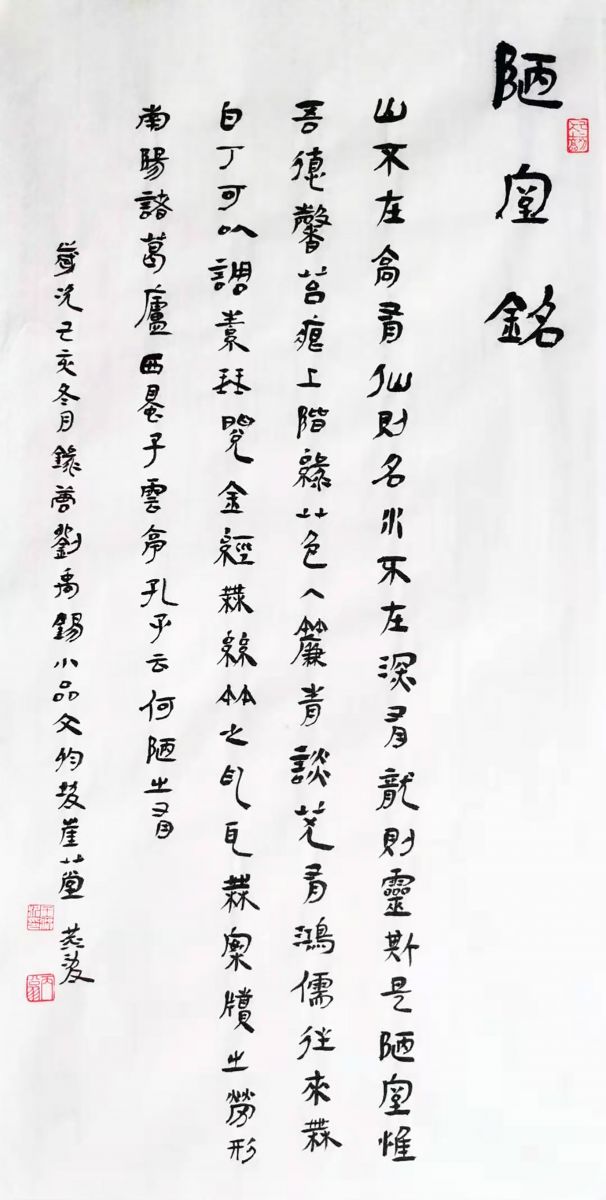 陋室銘
山不在高有仙則名水不在深有龍則靈斯是陋室惟
吾德馨苔痕上階綠艸色入簾青談笑有鴻儒往來無
白丁可以調素琴閱金經無絲竹之亂耳無案牘之勞形
南陽諸葛廬西蜀子雲亭孔子云何陋之有
歲次己亥冬月錄唐劉禹錫小品文於崖艸堂